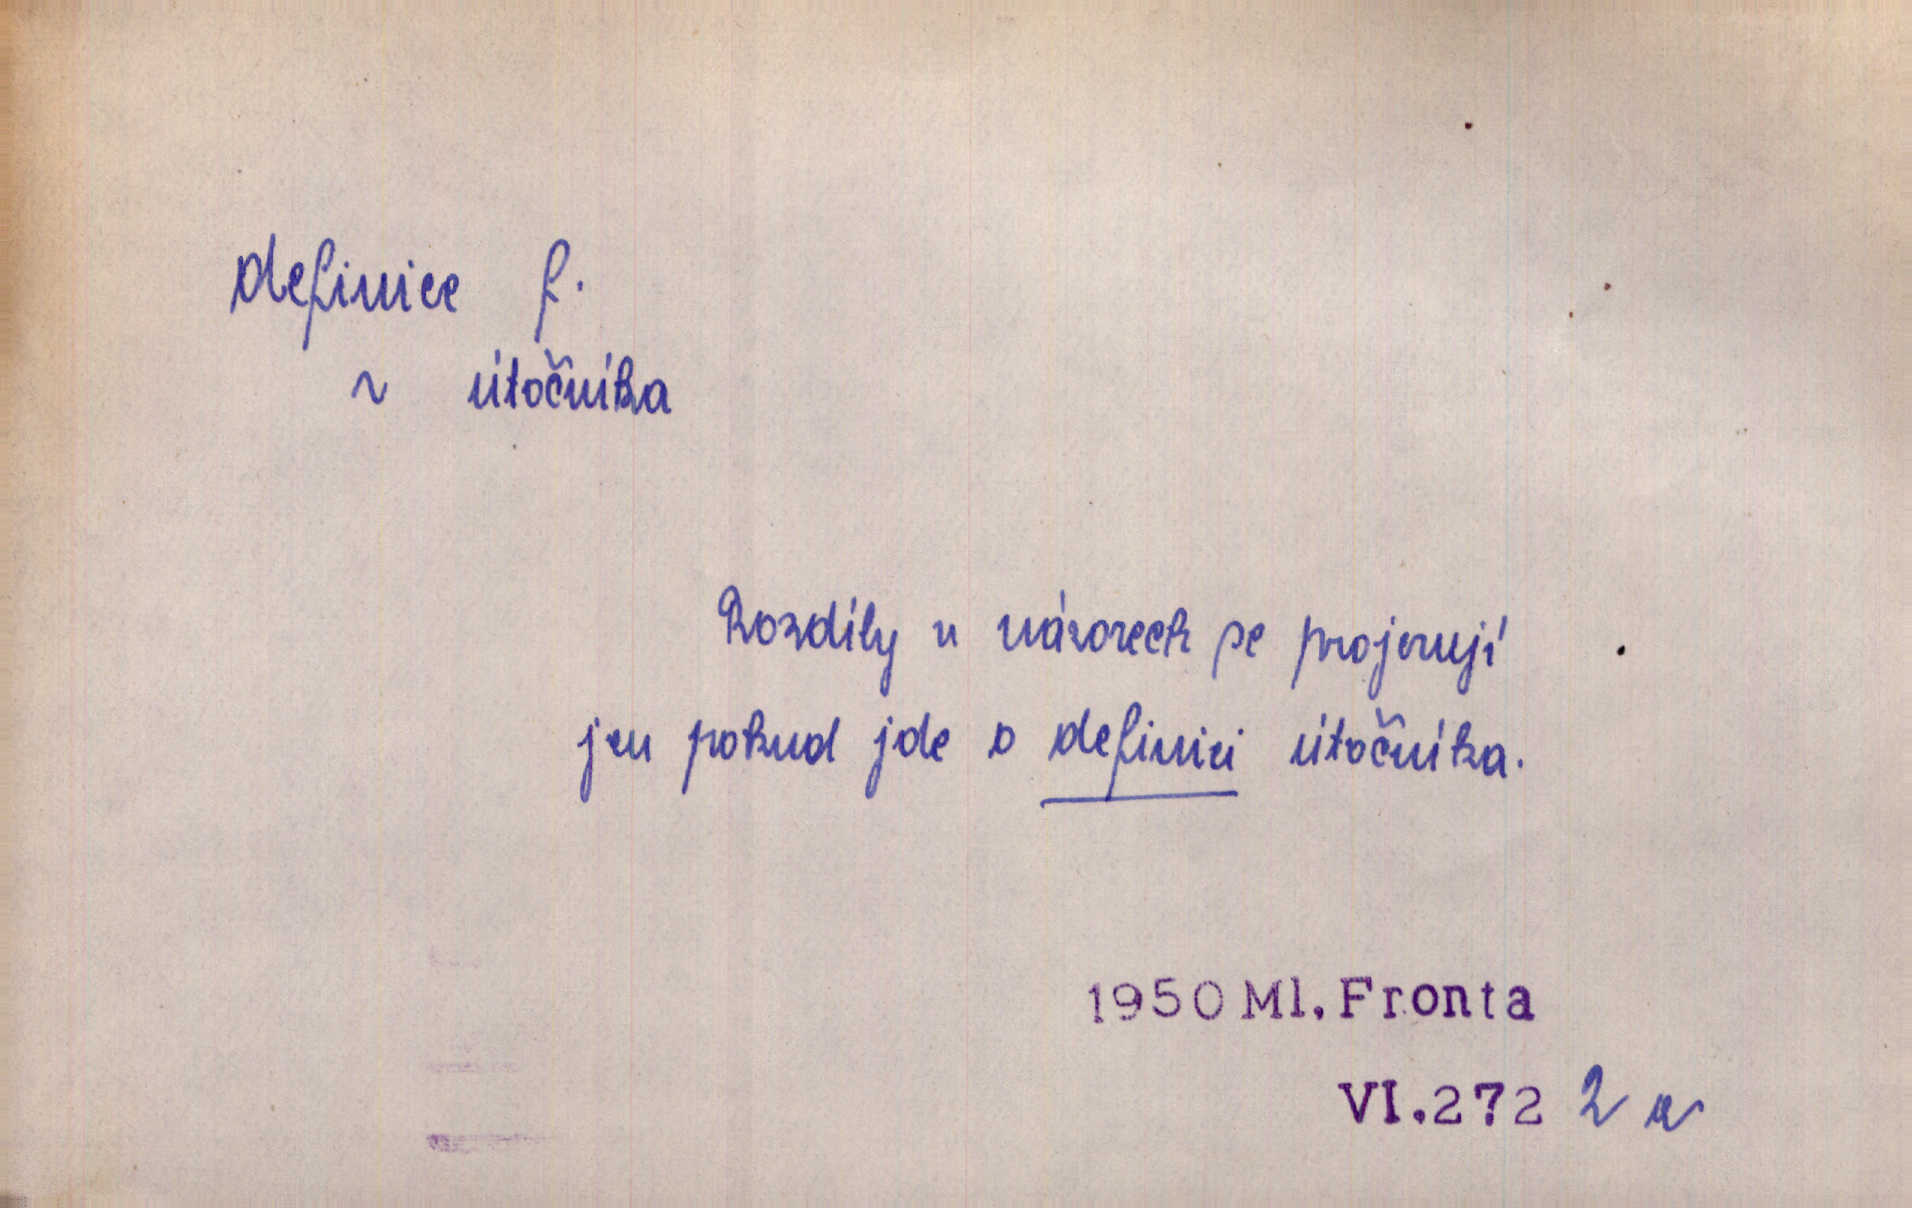 definice f.
~ útočníka
Rozdíly v názorech se projevují
jen pokud jde o definici útočníka.
1950 Ml. Fronta
VI.272 2 a